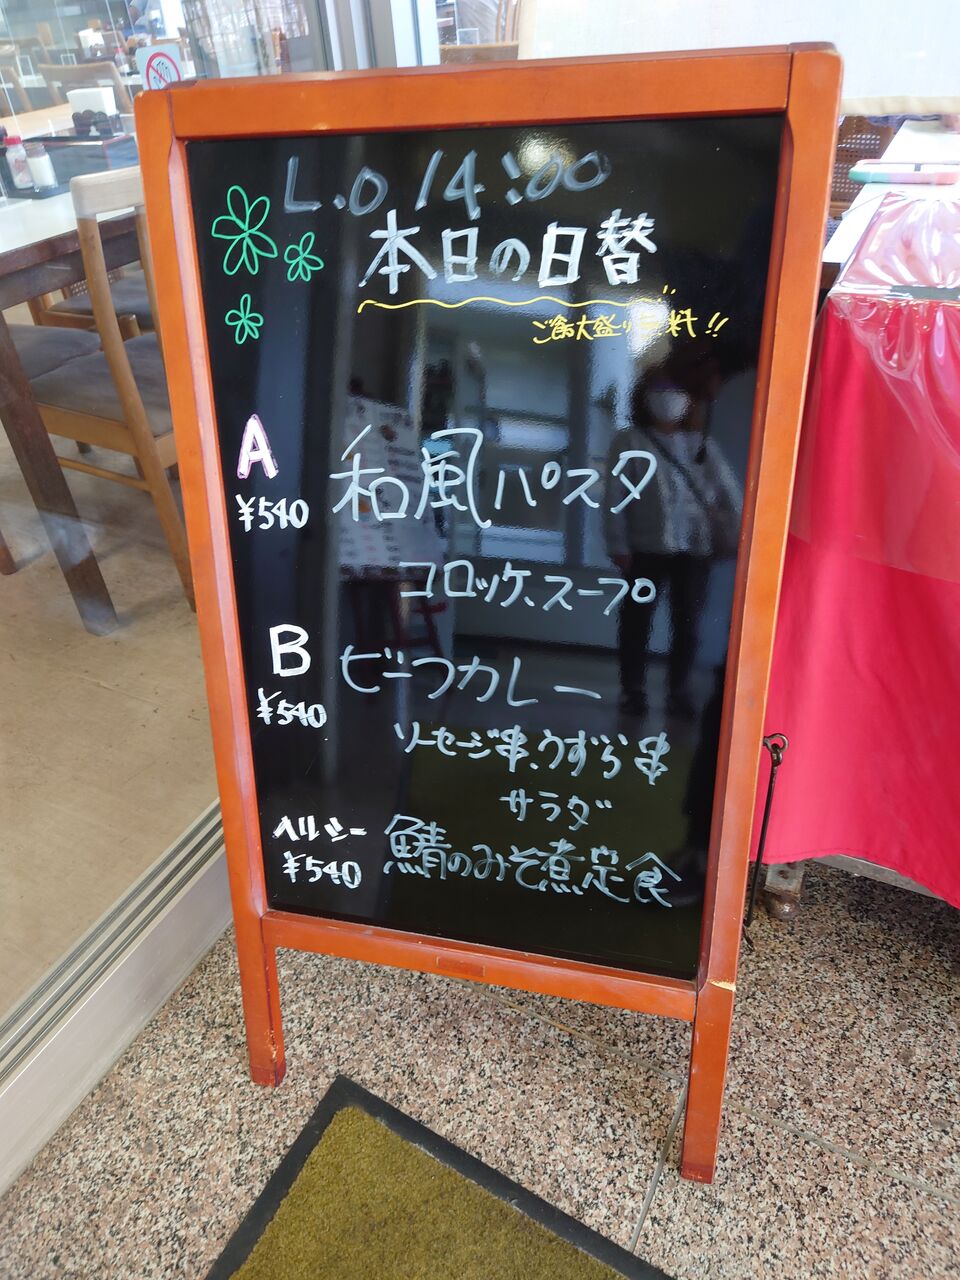 L.O 14:00
本日の日替
ご飯大盛り無料!!
A
¥540
和風パスタ
コロッケ、スープ
B
¥540
ビーフカレー
ソーセージ串、うずら串
サラダ
ヘルシー
¥540
鯖のみそ煮定食